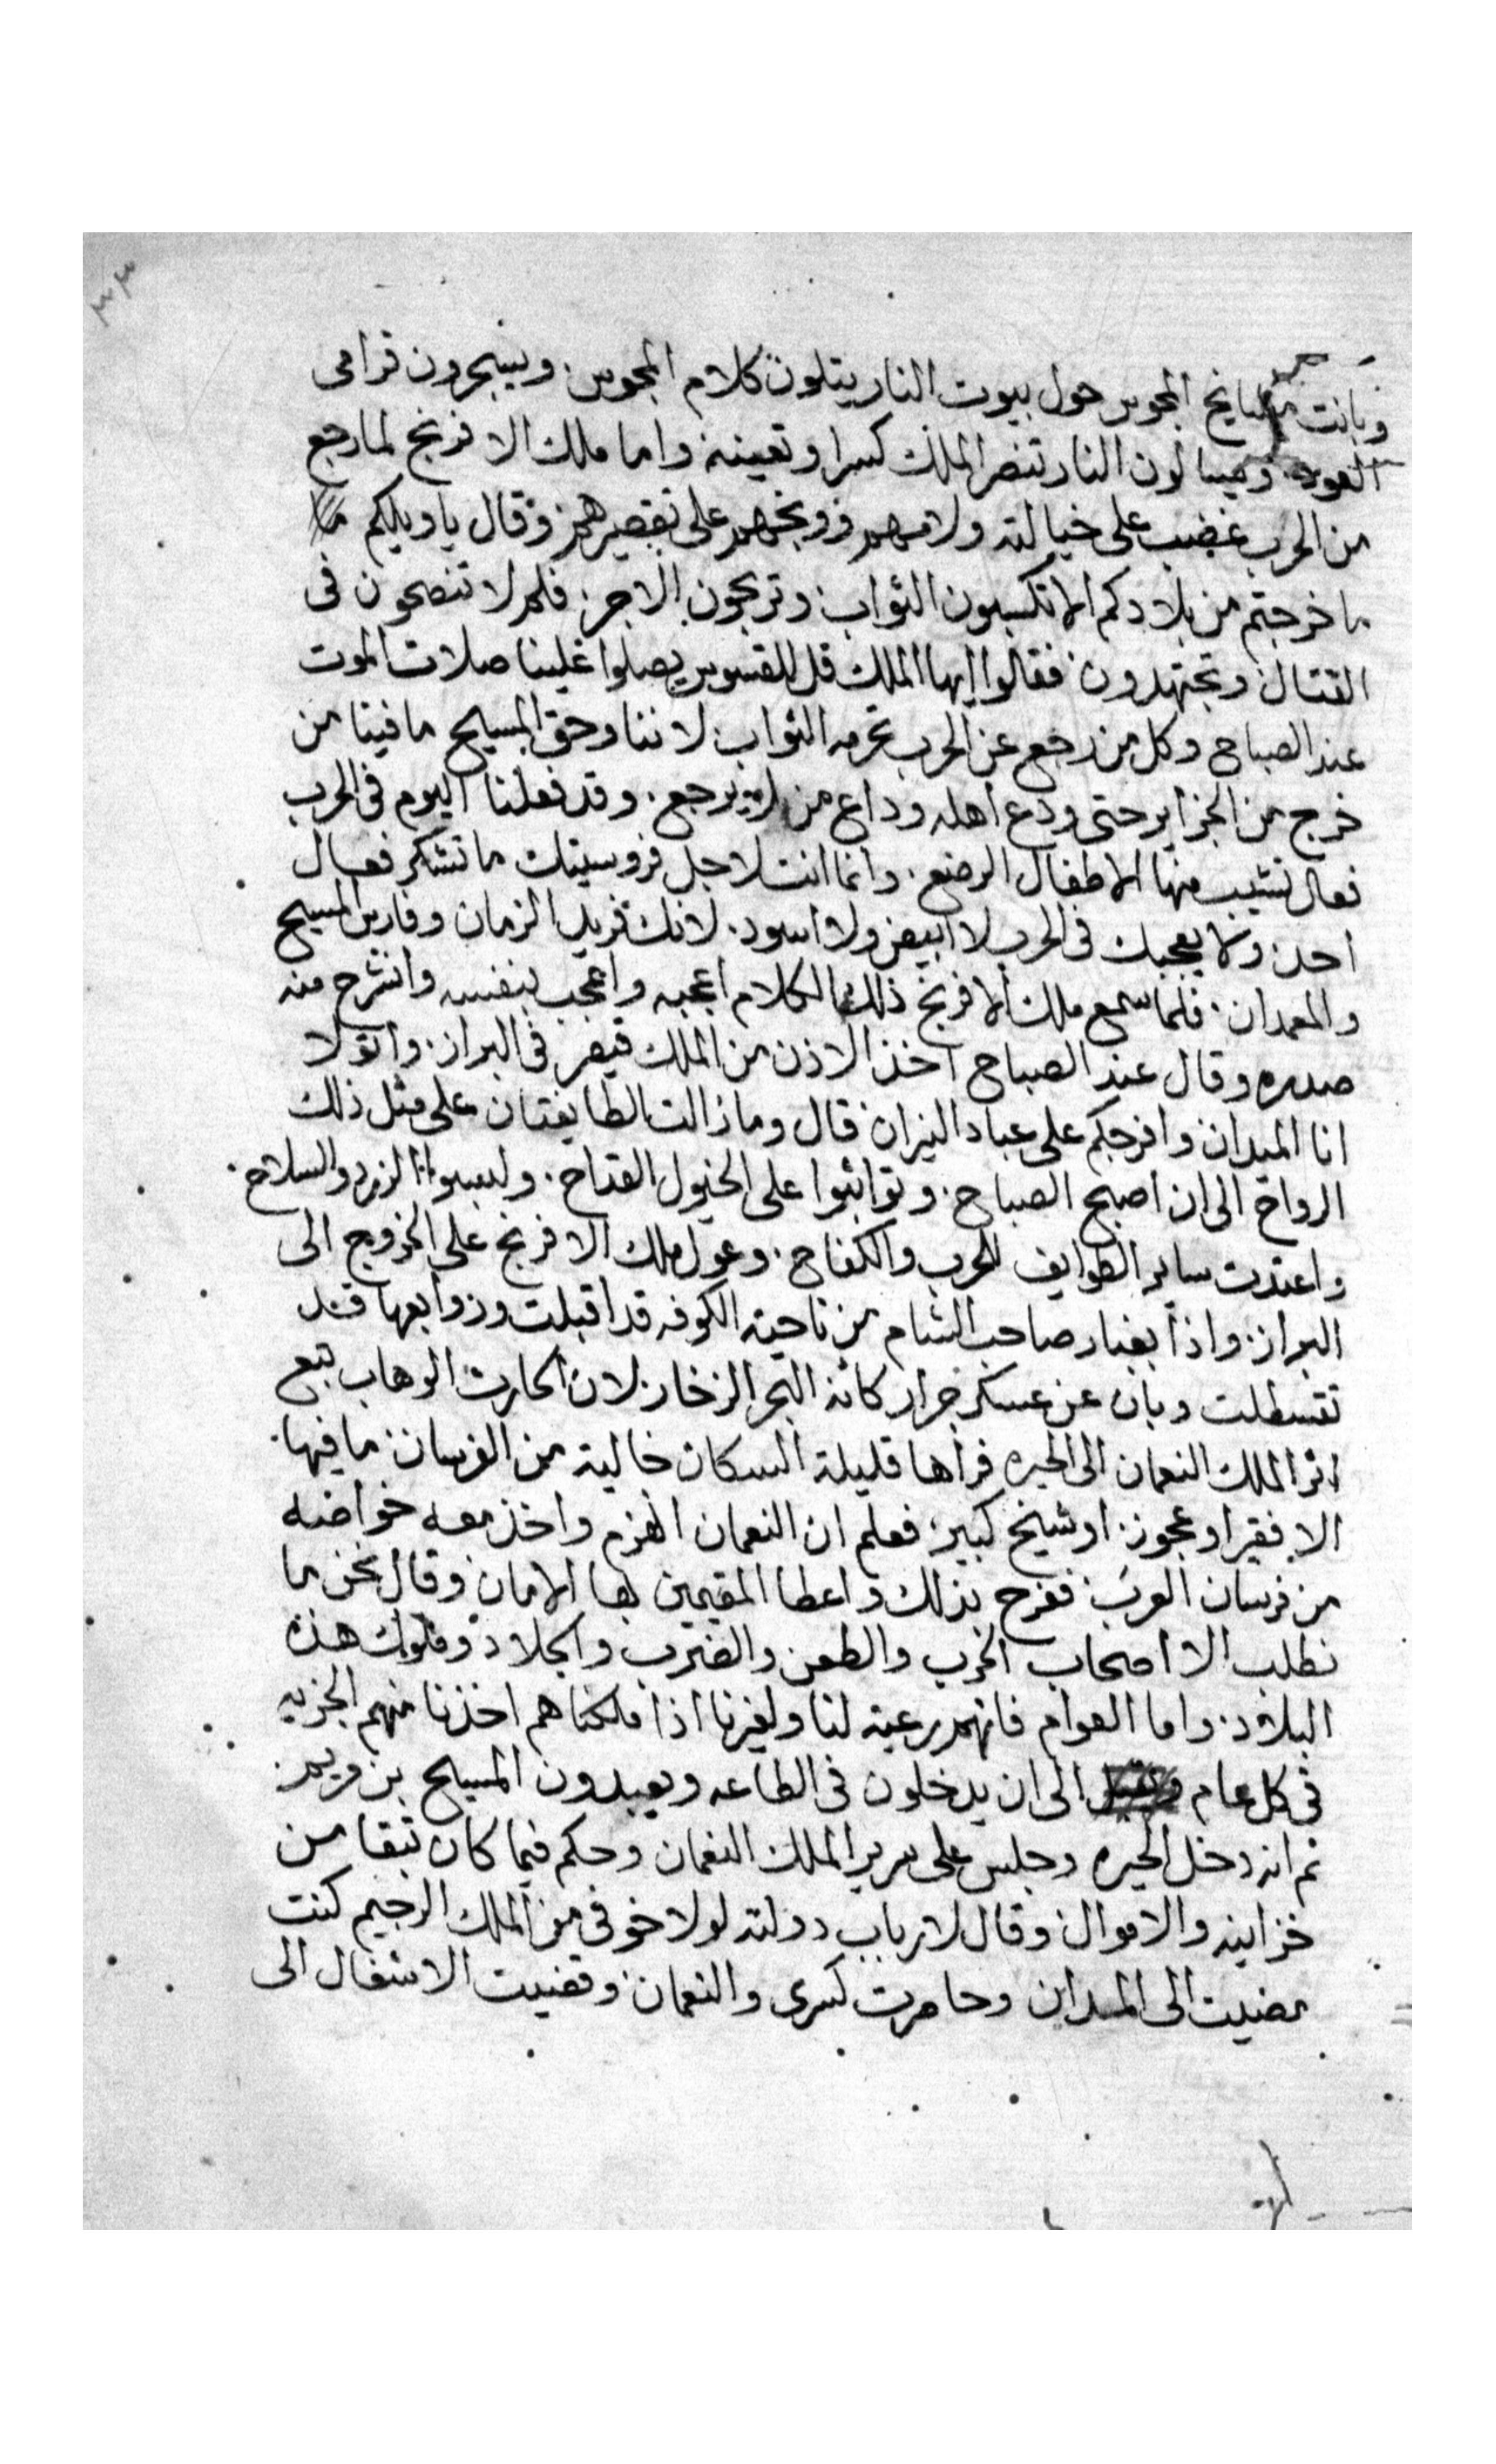 ٣٣
وباتت مشايخ المجوس حول بيوت النار يتلون كلام المجوس. ويسجرون قرامى
العود. ويسالون النار تنصر الملك كسرا وتعينه واما ملك الافرنج لما رجع
من الحرب غضب على خيالته ولامهم ووبخهم على تقصيرهم وقال ياويلكم
ما خرجتم من بلادكم الا تكسبون الثواب وتربحون الاجر. فلم لا تنصحون فى
القتال وتجتهدون فقالوا ايها الملك قل للقسوس يصلوا علينا صلات الموت
عند الصباح وكل من رجع عن الحرب تحرمه الثواب لاننا وحق المسيح ما فينا من
خرج من الجزاير حتى ودع اهله وداع من لا يرجع. وقد فعلنا اليوم فى الحرب
فعال تشيب منها الاطفال الرضع. وانما انت لاجل فروسيتك ما تشكر فعال
احد ولا يعجبك فى الحرب لا ابيض ولا اسود. لانك فريد الزمان وفارس المسيح
والمعمدان. فلما سمع ملك الافرنج ذلك الكلام اعجبه واعجب بنفسه وانشرح منه
صدره وقال عند الصباح اخذ الاذن من الملك قيصر فى البراز. واتولا
انا الميدان وافرجكم على عباد النيران قال وما زالت الطايفتان على مثل ذلك
الرواح الى ان اصبح الصباح. وتواثبوا على الخيول القداح. ولبسوا الزرد والسلاح.
واعتدت ساير الطوايف للحرب والكفاح. وعول ملك الافرنج على الخروج الى
البراز. واذا بغبار صاحب الشام من ناحية الكوفه قد اقبلت وزوابعها قد
تقسطلت وبان عن عسكر جرار كانه البحر الزخار لان الحارث الوهاب تبع
اثر الملك النعمان الى الحيره فراها قليلة السكان خالية من الفرسان ما فيها.
الا فقير او عجوز. او شيخ كبير. فعلم ان النعمان انهزم واخذ معه خواصه
من فرسان العرب ففرح بذلك واعطا المقيمين بها الامان وقال نحن ما
نطلب الا اصحاب الحرب والطعن والضرب والجلاد وملوك هذه
البلاد. واما العوام فانهم رعية لنا ولغيرنا اذا ملكناهم اخذنا منهم الجزيه
فى كل عام الى ان يدخلون فى الطاعه ويعبدون المسيح بن مريم.
ثم انه دخل الحيره وجلس على سرير الملك النعمان وحكم فيما كان تبقا من
خزاينه والاموال وقال لارباب دولته لولا خوفى من الملك الرحيم كنت
مضيت الى المداين وحاصرت كسرى والنعمان وقضيت الاشغال الى